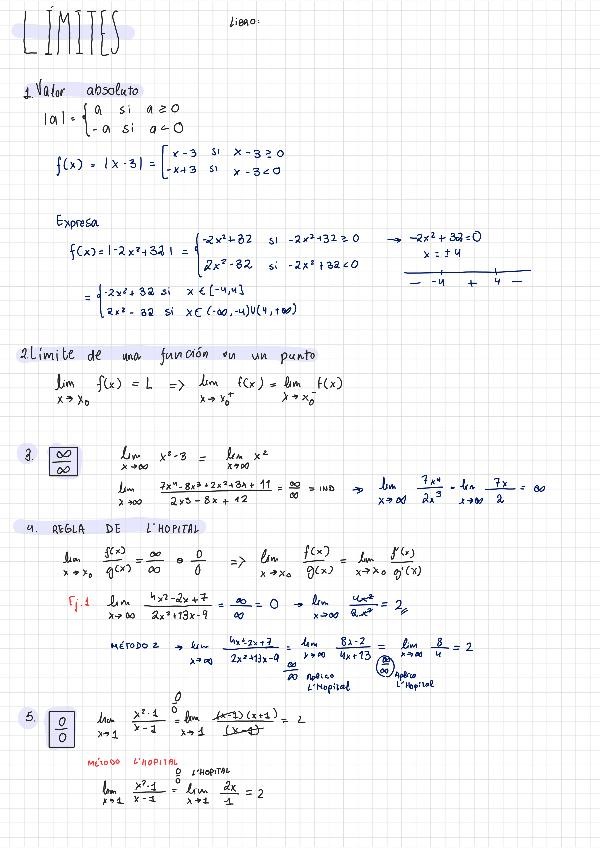 LÍMITES
LIBRO:
1. Valor absoluto
|a| = { a si a ≥ 0
-a si a < 0
f(x) = |x-3| = [ x-3 si x-3 ≥ 0
-x+3 si x-3 < 0
Expresa
f(x) = |-2x²+32| = { -2x²+32 si -2x²+32 ≥ 0 → -2x²+32=0
2x²-32 si -2x²+32 < 0 x = ±4
- -4 + 4 -
= { -2x²+32 si x ∈ [-4,4]
2x²-32 si x ∈ (-∞,-4)U(4,+∞)
2. Límite de una función en un punto
lim x→x₀ f(x) = L => lim x→x₀⁺ f(x) = lim x→x₀⁻ f(x)
3. ∞/∞ lim x→∞ x²-3 = lim x→∞ x²
lim x→∞ (7x⁴-8x³+2x²+3x+11)/(2x³-8x+12) = ∞/∞ = IND → lim x→∞ 7x⁴/2x³ = lim x→∞ 7x/2 = ∞
4. REGLA DE L'HOPITAL
lim x→x₀ f(x)/g(x) = ∞/∞ o 0/0 => lim x→x₀ f(x)/g(x) = lim x→x₀ f'(x)/g'(x)
Ej.1 lim x→∞ (4x²-2x+7)/(2x²+13x-9) = ∞/∞ = 0 → lim x→∞ 4x²/2x² = 2
MÉTODO 2 → lim x→∞ (4x²-2x+7)/(2x²+13x-9) = lim x→∞ (8x-2)/(4x+13) = lim x→∞ 8/4 = 2
∞/∞ Aplico L'Hopital ∞/∞ Aplico L'Hopital
5. 0/0 lim x→1 (x²-1)/(x-1) = 0/0 lim x→1 (x-1)(x+1)/(x-1) = 2
MÉTODO L'HOPITAL
0/0 L'HOPITAL
lim x→1 (x²-1)/(x-1) = lim x→1 2x/1 = 2